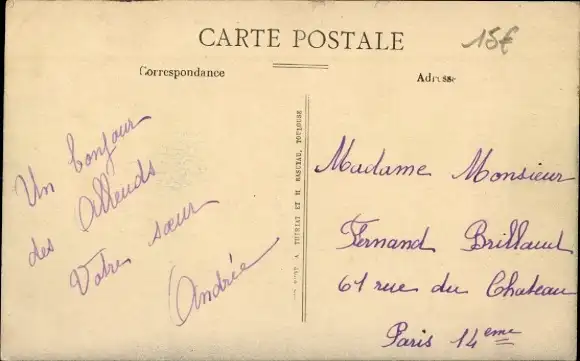 CARTE POSTALE
15€
Correspondance
Adresse
Un bonjour
des Alleuds
Votre sœur
Andrée
A. THIRIAT ET H. BASUYAU, TOULOUSE
Madame Monsieur
Fernand Brillaud
61 rue du Chateau
Paris 14eme